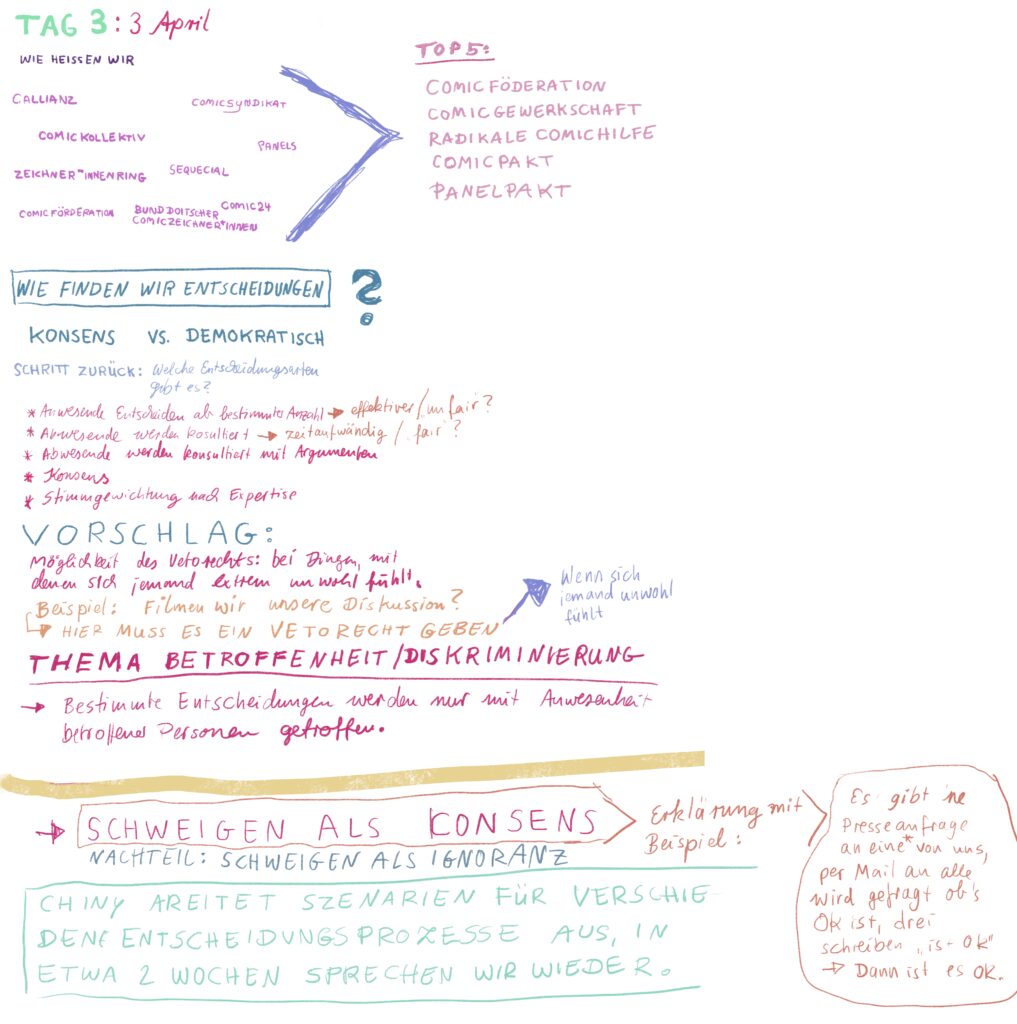 TAG 3: 3 April
WIE HEISSEN WIR
CALLIANZ
COMICSYNDIKAT
COMICKOLLEKTIV
PANELS
ZEICHNER*INNENRING
SEQUECIAL
COMICFÖRDERATION
BUND DOITSCHER
COMICZEICHNER*INNEN
COMIC24
TOP 5:
COMICFÖDERATION
COMICGEWERKSCHAFT
RADIKALE COMICHILFE
COMICPAKT
PANELPAKT
WIE FINDEN WIR ENTSCHEIDUNGEN ?
KONSENS VS. DEMOKRATISCH
SCHRITT ZURÜCK: Welche Entscheidungsarten
gibt es?
* Anwesende Entscheiden ab bestimmter Anzahl → effektiver / "unfair"?
* Abwesende werden kosultiert → zeitaufwändig / "fair"?
* Abwesende werden konsultiert mit Argumenten
* Konsens
* Stimmgewichtung nach Expertise
VORSCHLAG:
Möglichkeit des Vetorechts: bei Dingen, mit
denen sich jemand extrem unwohl fühlt.
Beispiel: Filmen wir unsere Diskussion?
→ HIER MUSS ES EIN VETORECHT GEBEN
Wenn sich
jemand unwohl
fühlt
THEMA BETROFFENHEIT/DISKRIMINIERUNG
→ Bestimmte Entscheidungen werden nur mit Anwesenheit
betroffener Personen getroffen.
→ SCHWEIGEN ALS KONSENS
NACHTEIL: SCHWEIGEN ALS IGNORANZ
Erklärung mit
Beispiel:
Es gibt 'ne
Presseanfrage
an eine* von uns,
per Mail an alle
wird gefragt ob's
Ok ist, drei
schreiben "is- OK"
→ Dann ist es OK.
CHINY AREITET SZENARIEN FÜR VERSCHIE
DENE ENTSCHEIDUNGSPROZESSE AUS, IN
ETWA 2 WOCHEN SPRECHEN WIR WIEDER.